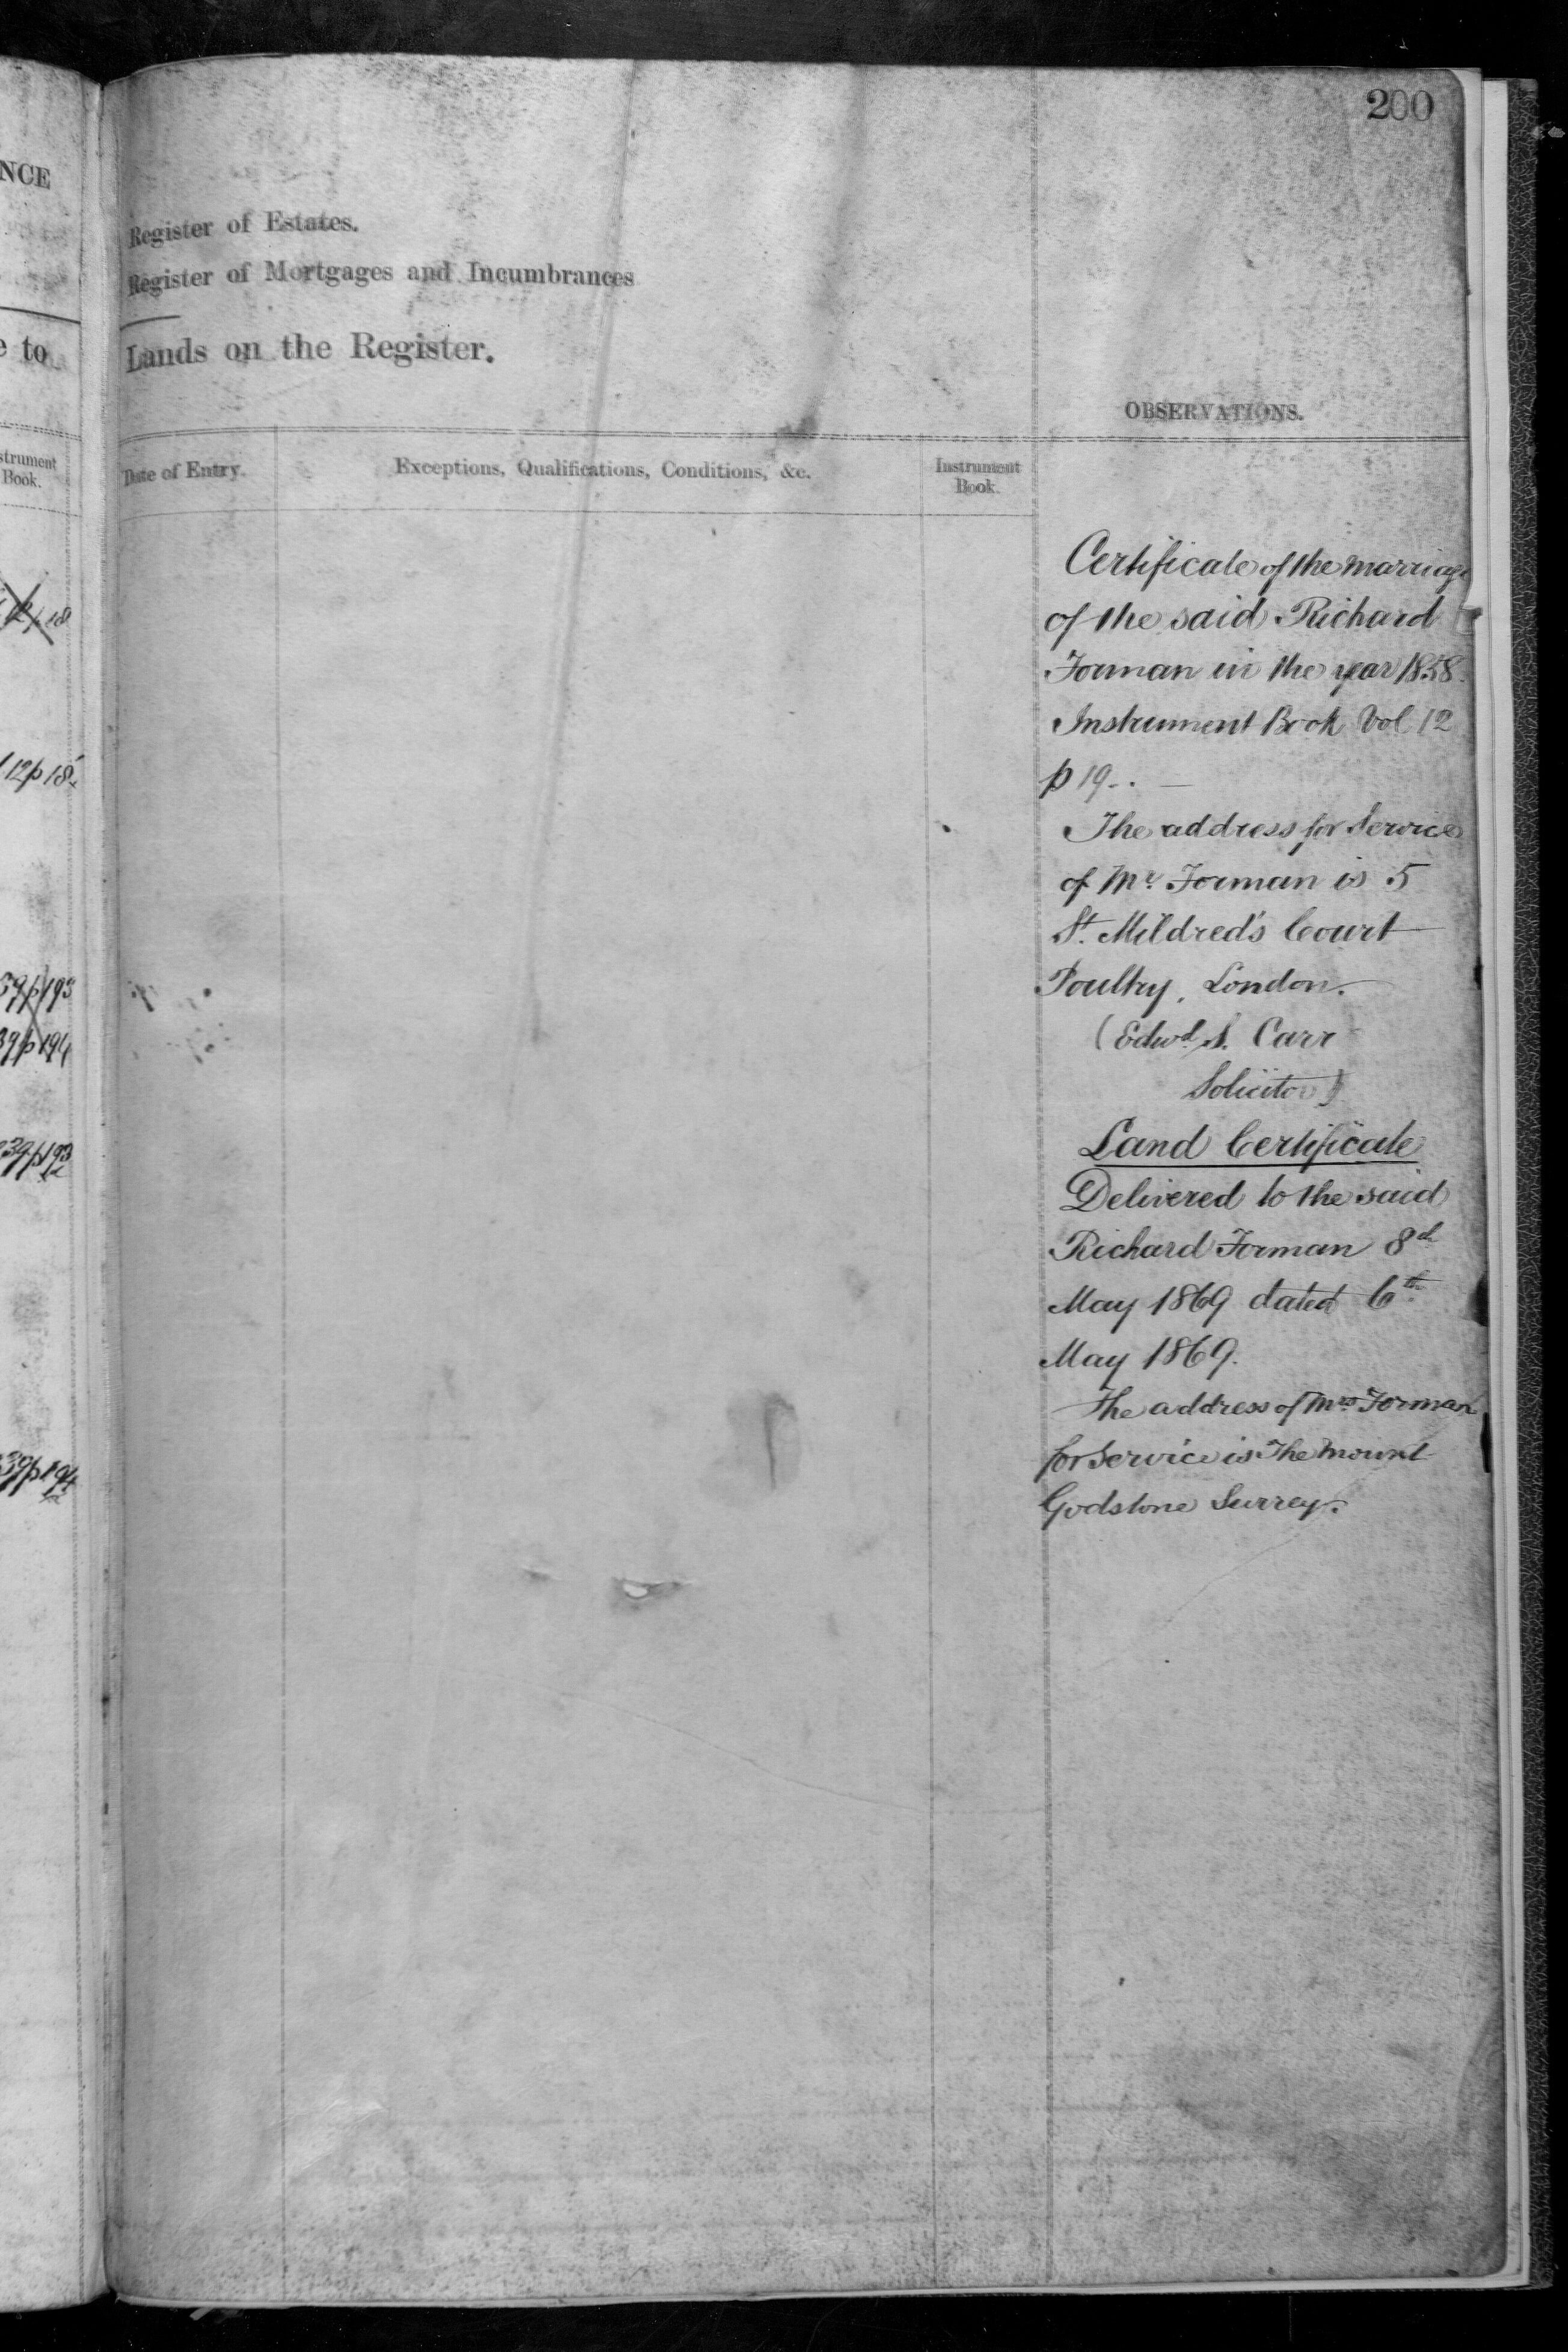 200
NCE
Register of Estates.
Register of Mortgages and Incumbrances
e to
Lands on the Register.
OBSERVATIONS.
strument
Book.
Date of Entry.
Exceptions, Qualifications, Conditions, &c.
Instrument
Book.
Certificate of the marriage
of the said Richard
Forman in the year 1858.
Instrument Book Vol 12
p 19. . —
The address for Service
of Mr. Forman is 5
St. Mildred's Court
Poultry, London.
(Edwd. S. Carr
Solicitor)
Land Certificate
Delivered to the said
Richard Forman 8th
May 1869 dated 6th.
May 1869.
The address of Mrs Forman
for Service is The Mount
Godstone Surrey.
p 18
12 p 18
39 p 193
39 p 194
39 p 193
39 p 194